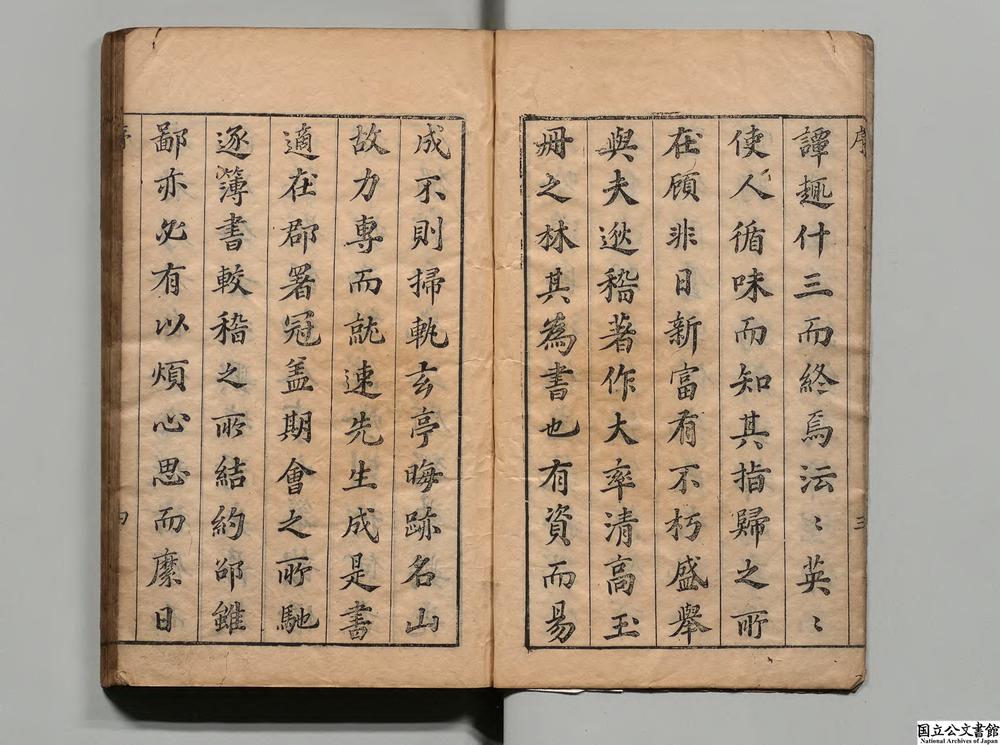 序
三
譚趣什三而終焉沄〻英〻
使人循味而知其指歸之所
在顧非日新富有不朽盛舉
與夫逖稽著作大率清高玉
冊之林其為書也有資而易
成不則掃軌玄亭晦跡名山
故力專而就速先生成是書
適在郡署冠盖期會之所馳
逐簿書較稽之所結約邵雖
鄙亦必有以煩心思而縻日
序
四
国立公文書館
National Archives of Japan